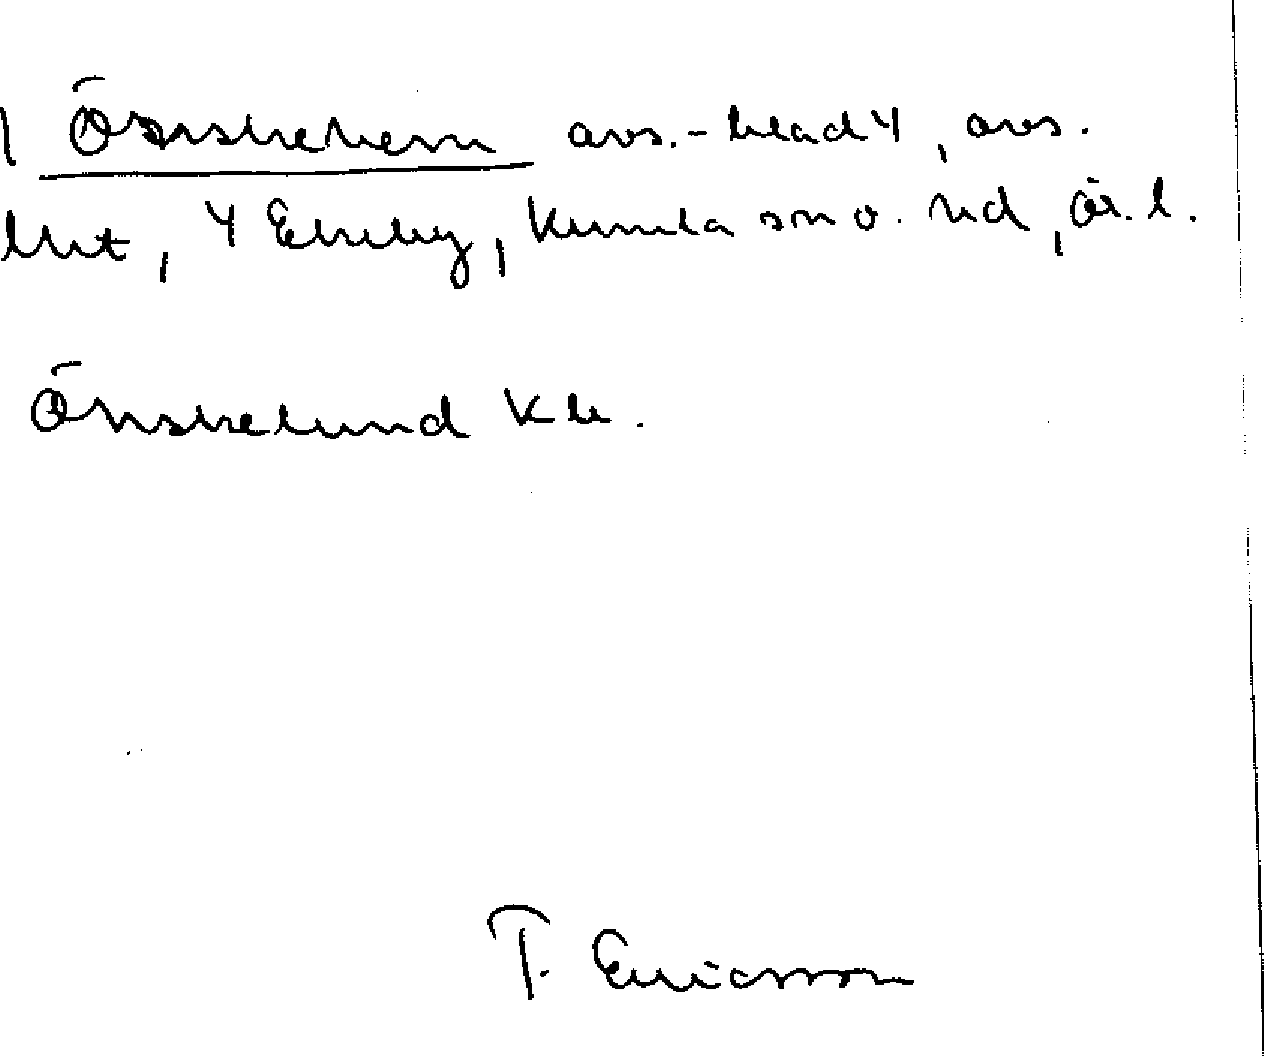 Önskehem avs.-blad 4, avs.
4 Ekeby, Kumla sn o. hd, Ör. l.
Önskelund kk.
T. Ericsson